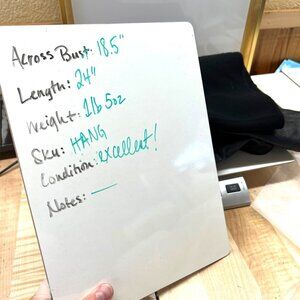 Across Bust: 18.5"
Length: 24"
Weight: 1lb 5oz
Sku: HANG
Condition: excellent!
Notes: —